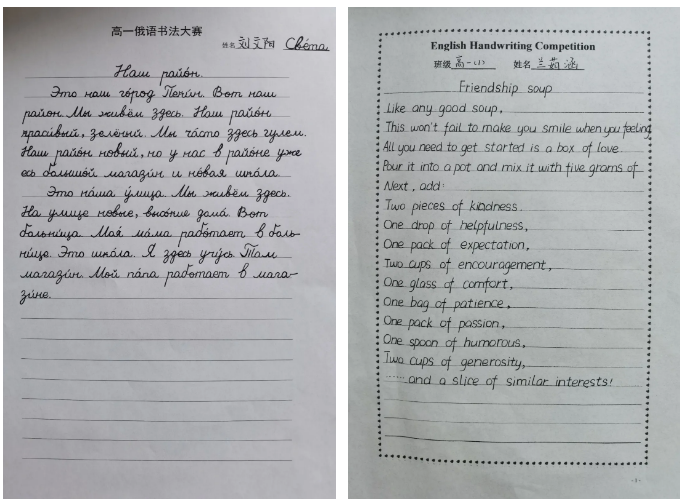 高一俄语书法大赛
姓名 刘文阳 Света
Наш райо́н.
Это наш го́род Пеки́н. Вот наш
район. Мы живём здесь. Наш райо́н
краси́вый, зелёный. Мы ча́сто здесь гуляем.
Наш райо́н новый, но у нас в райо́не уже
есь большо́й магази́н и но́вая шко́ла.
Это на́ша у́лица. Мы живём здесь.
На улице но́вые, высо́кие дома́. Вот
больни́ца. Моя́ ма́ма рабо́тает в боль-
ни́це. Это шко́ла. Я здесь учу́сь. Там
магази́н. Мой па́па работает в мага-
зи́не.
English Handwriting Competition
班级 高一(1) 姓名 兰茹涵
Friendship soup
Like any good soup,
This won't fail to make you smile when you feeling
All you need to get started is a box of love.
Pour it into a pot and mix it with five grams of
Next, add:
Two pieces of kindness.
One drop of helpfulness,
One pack of expectation,
Two cups of encouragement,
One glass of comfort,
One bag of patience,
One pack of passion,
One spoon of humorous,
Two cups of generosity,
......and a slice of similar interests!
-1-